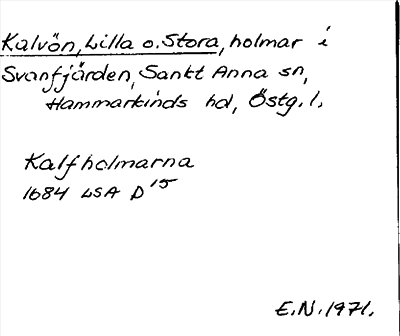 Kalvön, Lilla o. Stora, holmar i
Svanfjärden, Sankt Anna sn,
Hammarkinds hd, Östg. l.
Kalfholmarna
1684 LSA D 15
E.N. 1971.